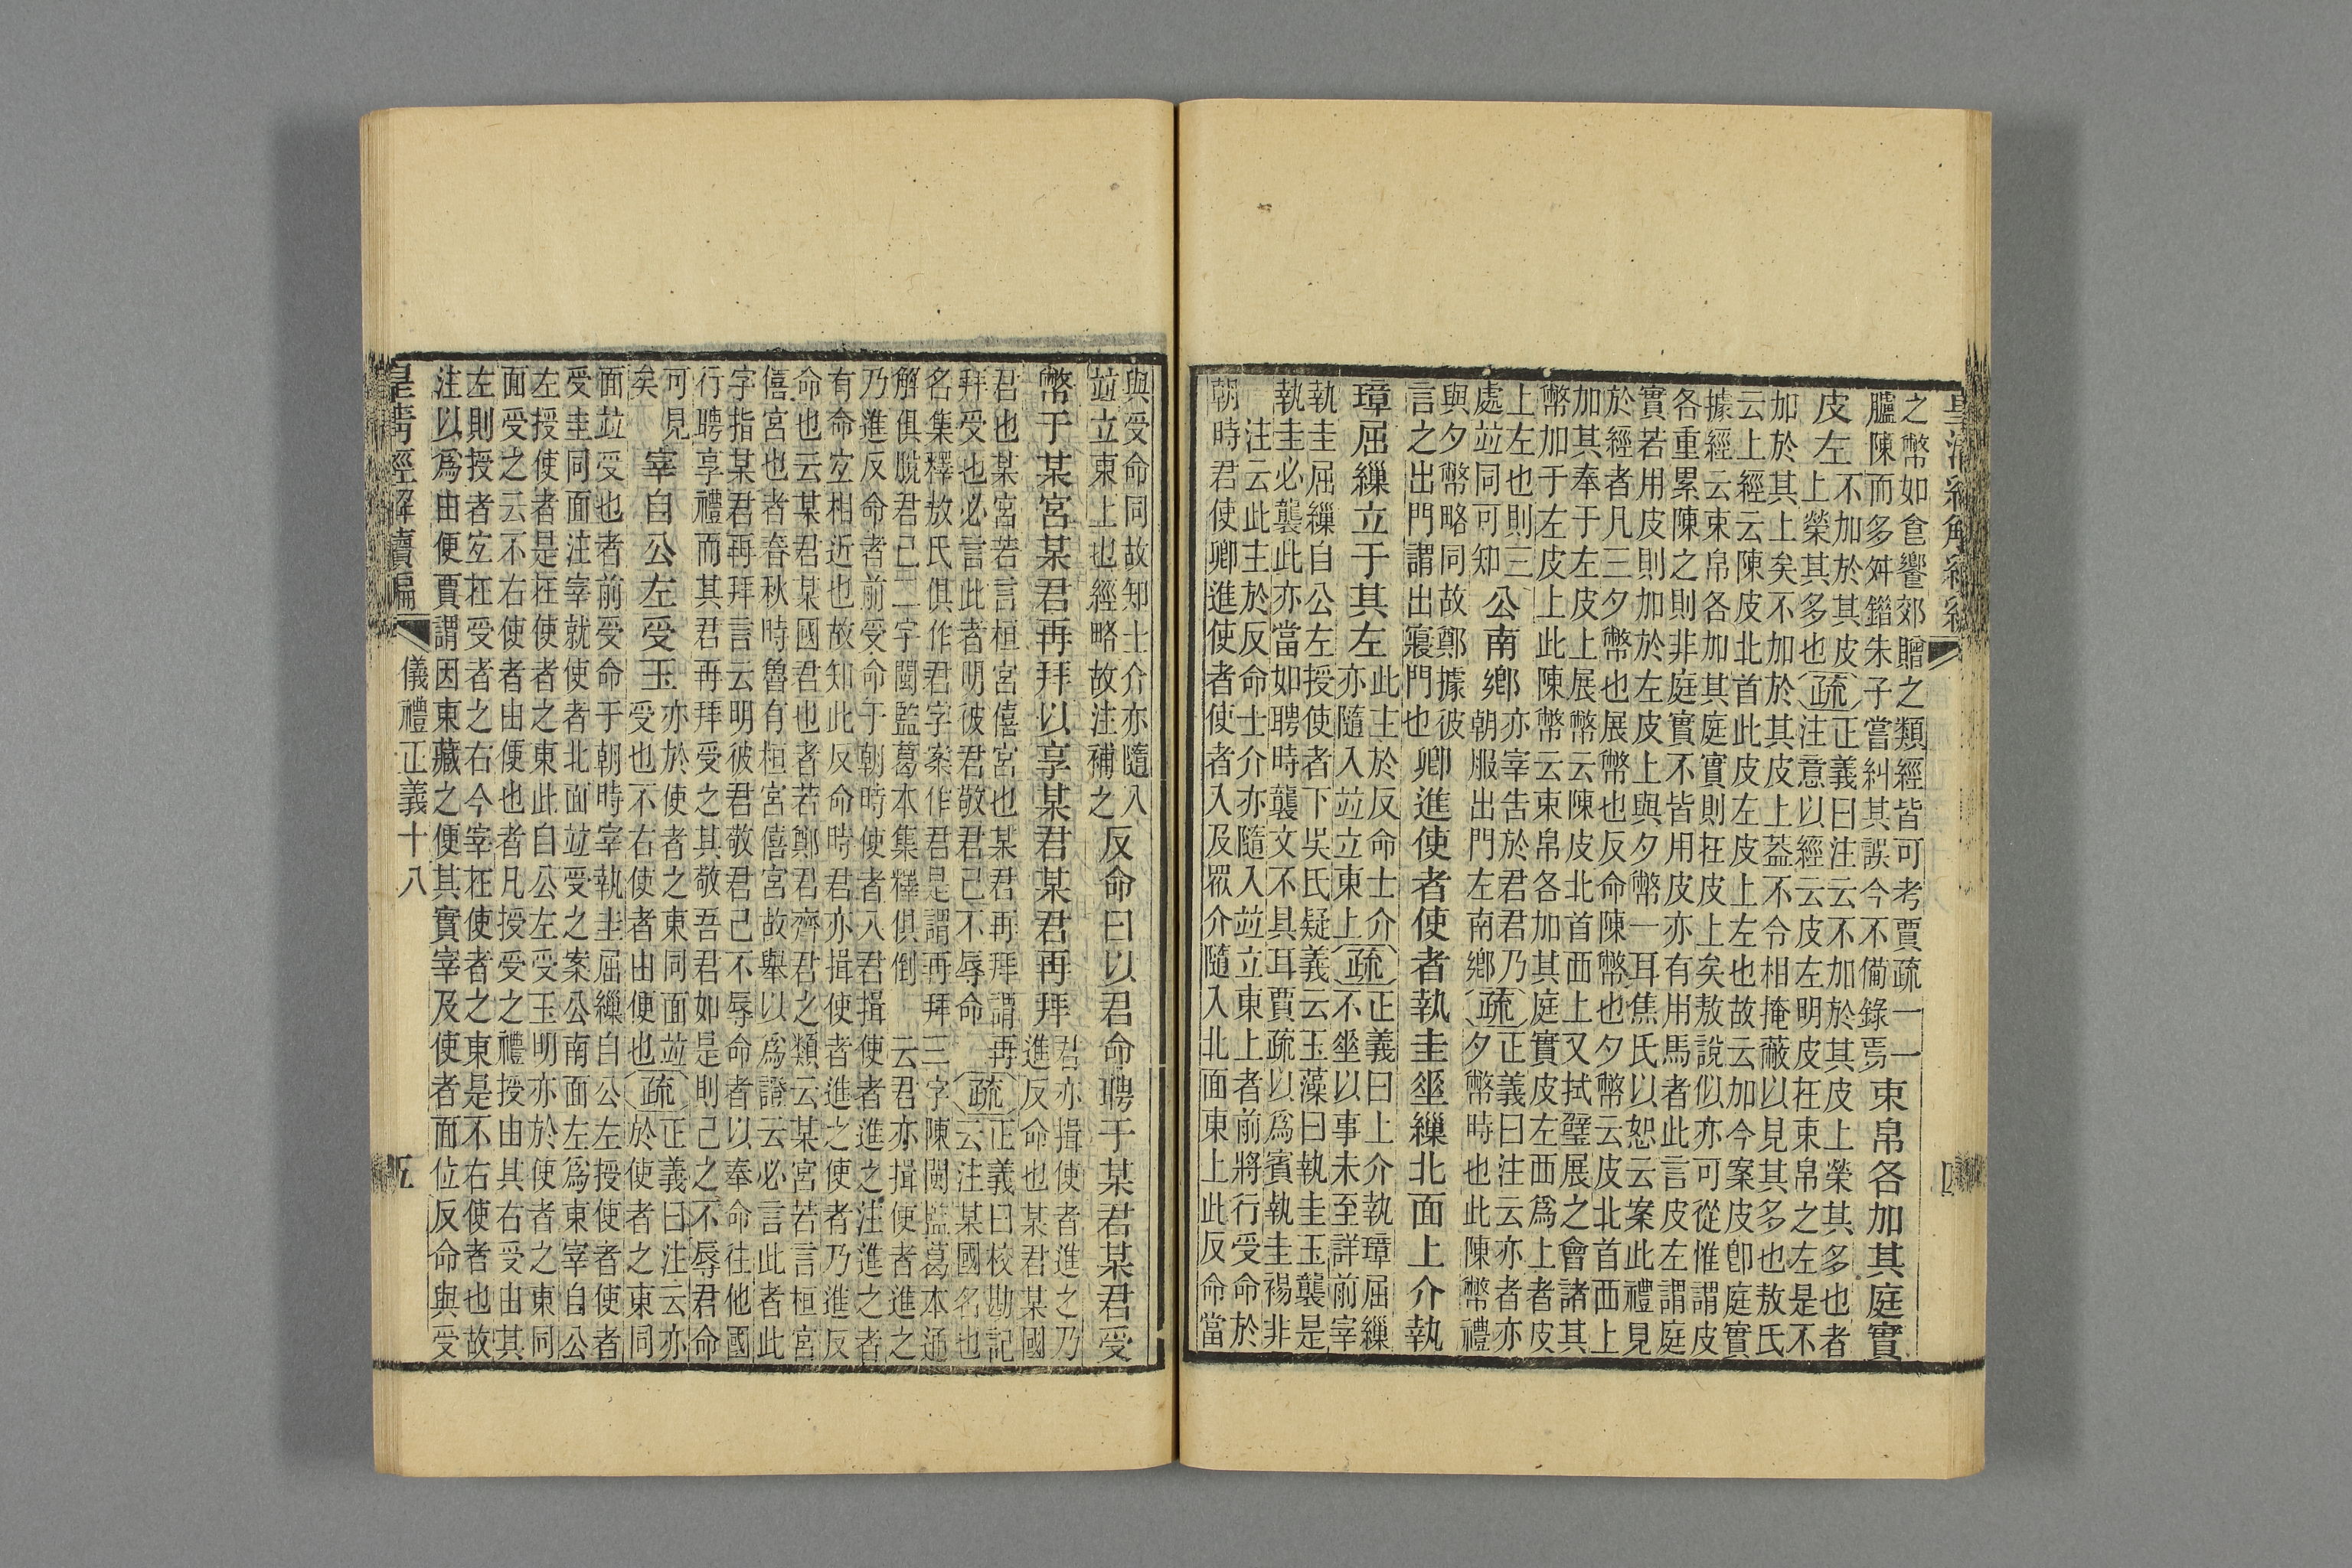 之幣如飧饔郊贈之類經皆可考賈疏一一
臚陳而多舛錯朱子嘗糾其誤今不備錄焉
束帛各加其庭實
皮左
不加於其皮
上榮其多也
疏
正義曰注云不加於其皮上榮其多也者
注意以經云皮左明皮在束帛之左是不
加於其上矣不加於其皮上蓋不令相掩蔽以見其多也敖氏
云上經云陳皮北首此皮左皮上左也故云加今案皮卽庭實
據經云束帛各加其庭實則在皮上矣敖說似亦可從惟謂皮
各重累陳之則非庭實不皆用皮亦有用馬者此言皮左謂庭
實若用皮則加於左皮上與夕幣一耳焦氏以恕云案此禮見
於經者凡三夕幣也展幣也反命陳幣也夕幣云皮北首西上
加其奉于左皮上展幣云陳皮北首西上又拭璧展之會諸其
幣加于左皮上此陳幣云束帛各加其庭實皮左西爲上者皮
上左也則三
處竝同可知
公南鄉
亦宰告於君君乃
朝服出門左南鄉
疏
正義曰注云亦者亦
夕幣時也此陳幣禮
與夕幣略同故鄭據彼
言之出門謂出寢門也
卿進使者使者執圭垂繅北面上介執
璋屈繅立于其左
此主於反命士介
亦隨入竝立東上
疏
正義曰上介執璋屈繅
不垂以事未至詳前宰
執圭屈繅自公左授使者下吳氏疑義云玉藻曰執圭玉襲是
執圭必襲此亦當如聘時襲文不具耳賈疏以爲賓執圭裼非
注云此主於反命士介亦隨入竝立東上者前將行受命於
朝時君使卿進使者使者入及眾介隨入北面東上此反命當
與受命同故知士介亦隨入
竝立東上也經略故注補之
反命曰以君命聘于某君某君受
幣于某宮某君再拜以享某君某君再拜
君亦揖使者進之乃
進反命也某君某國
君也某宮若言桓宮僖宮也某君再拜謂再
拜受也必言此者明彼君敬君己不辱命
疏
正義曰校勘記
云注某國名也
名集釋敖氏俱作君字案作君是謂再拜三字陳閩監葛本通
解俱脫君己二字閩監葛本集釋俱倒　云君亦揖使者進之
乃進反命者前受命于朝時使者入君揖使者進之注進之者
有命宐相近也故知此反命時君亦揖使者進之使者乃進反
命也云某君某國君也者若鄭君齊君之類云某宮若言桓宮
僖宮也者春秋時魯有桓宮僖宮故舉以爲證云必言此者此
字指某君再拜言云明彼君敬君己不辱命者以奉命往他國
行聘享禮而其君再拜受之其敬吾君如是則己之不辱君命
可見
矣
宰自公左受玉
亦於使者之東同面竝
受也不右使者由便也
疏
正義曰注云亦
於使者之東同
面竝受也者前受命于朝時宰執圭屈繅自公左授使者使者
受圭同面注宰就使者北面竝受之案公南面左爲東宰自公
左授使者是在使者之東此自公左受玉明亦於使者之東同
面受之云不右使者由便也者凡授受之禮授由其右受由其
左則授者宐在受者之右今宰在使者之東是不右使者也故
注以爲由便賈謂因東藏之便其實宰及使者面位反命與受
皇清經解續編
儀禮正義十八
五